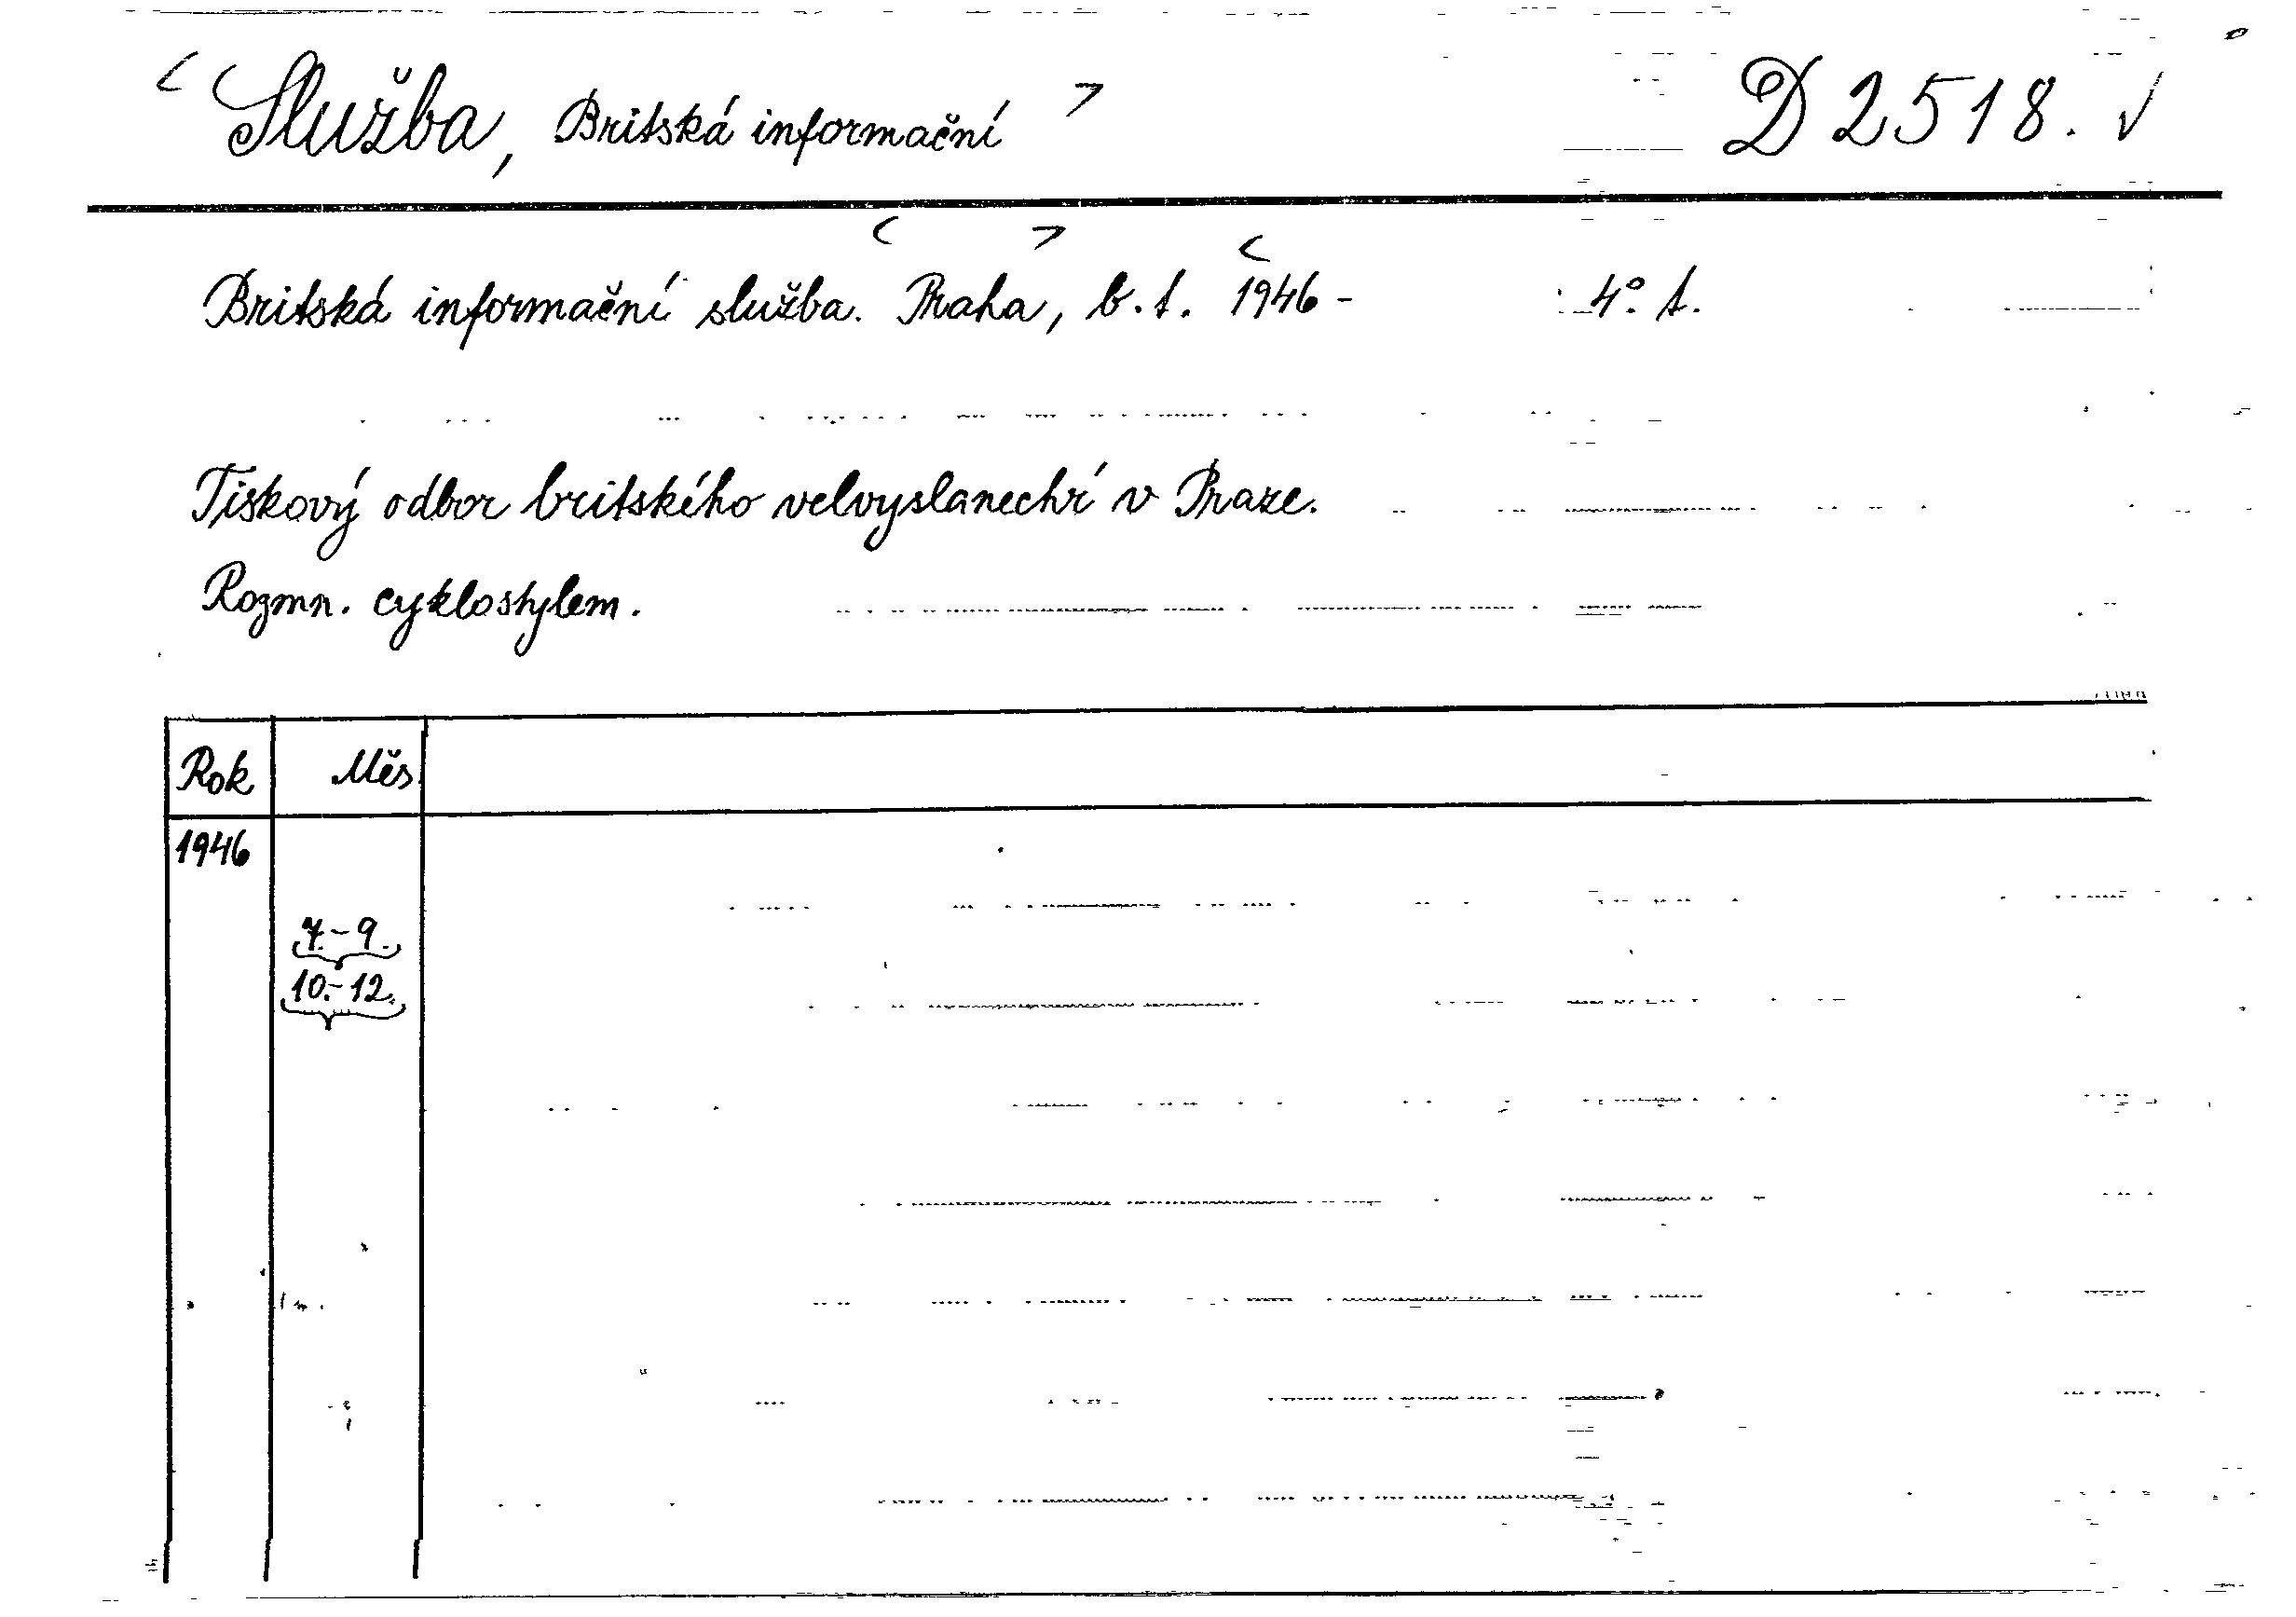 < Služba, Britská informační > D 2518. √
Britská informační služba. <Praha>, b.t. <1946 - 4°. t.
Tiskový odbor britského velvyslanectví v Praze.
Rozmn. cyklostylem.
Rok Měs.
1946
7.-9.
10.-12.